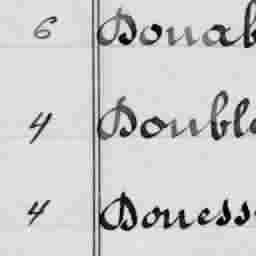 6 Douab
4 Double
4 Doness